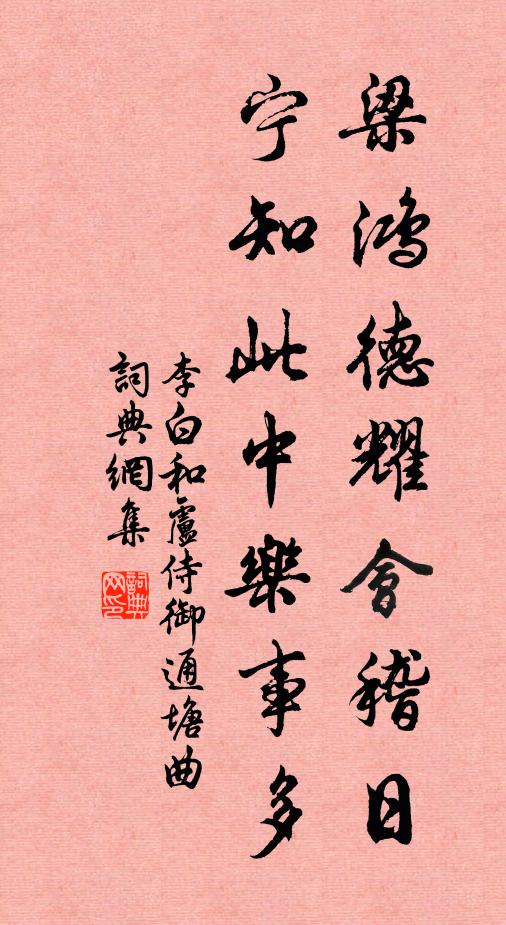 梁鴻德耀會稽日
宁知此中樂事多
李白和盧侍御通塘曲
詞典網集
詞典网印